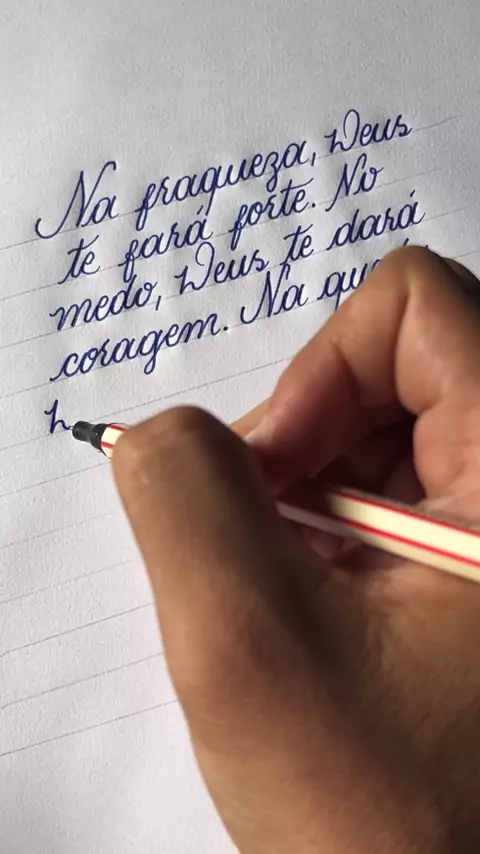 Na fraqueza, Deus
te fará forte. No
medo, Deus te dará
coragem. Na